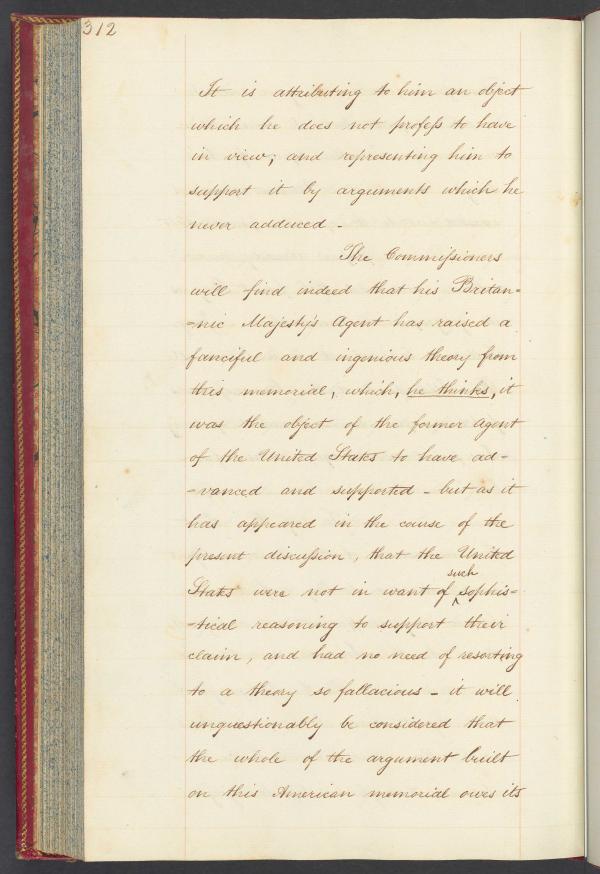 312
It is attributing to him an object
which he does not profess to have
in view; and representing him to
support it by arguments which he
never adduced -
The Commissioners
will find indeed that his Britan=
=nic Majesty's Agent has raised a
fanciful and ingenious theory from
this memorial, which, he thinks, it
was the object of the former Agent
of the United States to have ad-
-vanced and supported - but as it
has appeared in the course of the
present discussion, that the United
such
States were not in want of ^ sophis=
-tical reasoning to support their
claim, and had no need of resorting
to a theory so fallacious - it will
unquestionably be considered that
the whole of the argument built
on this American memorial owes its